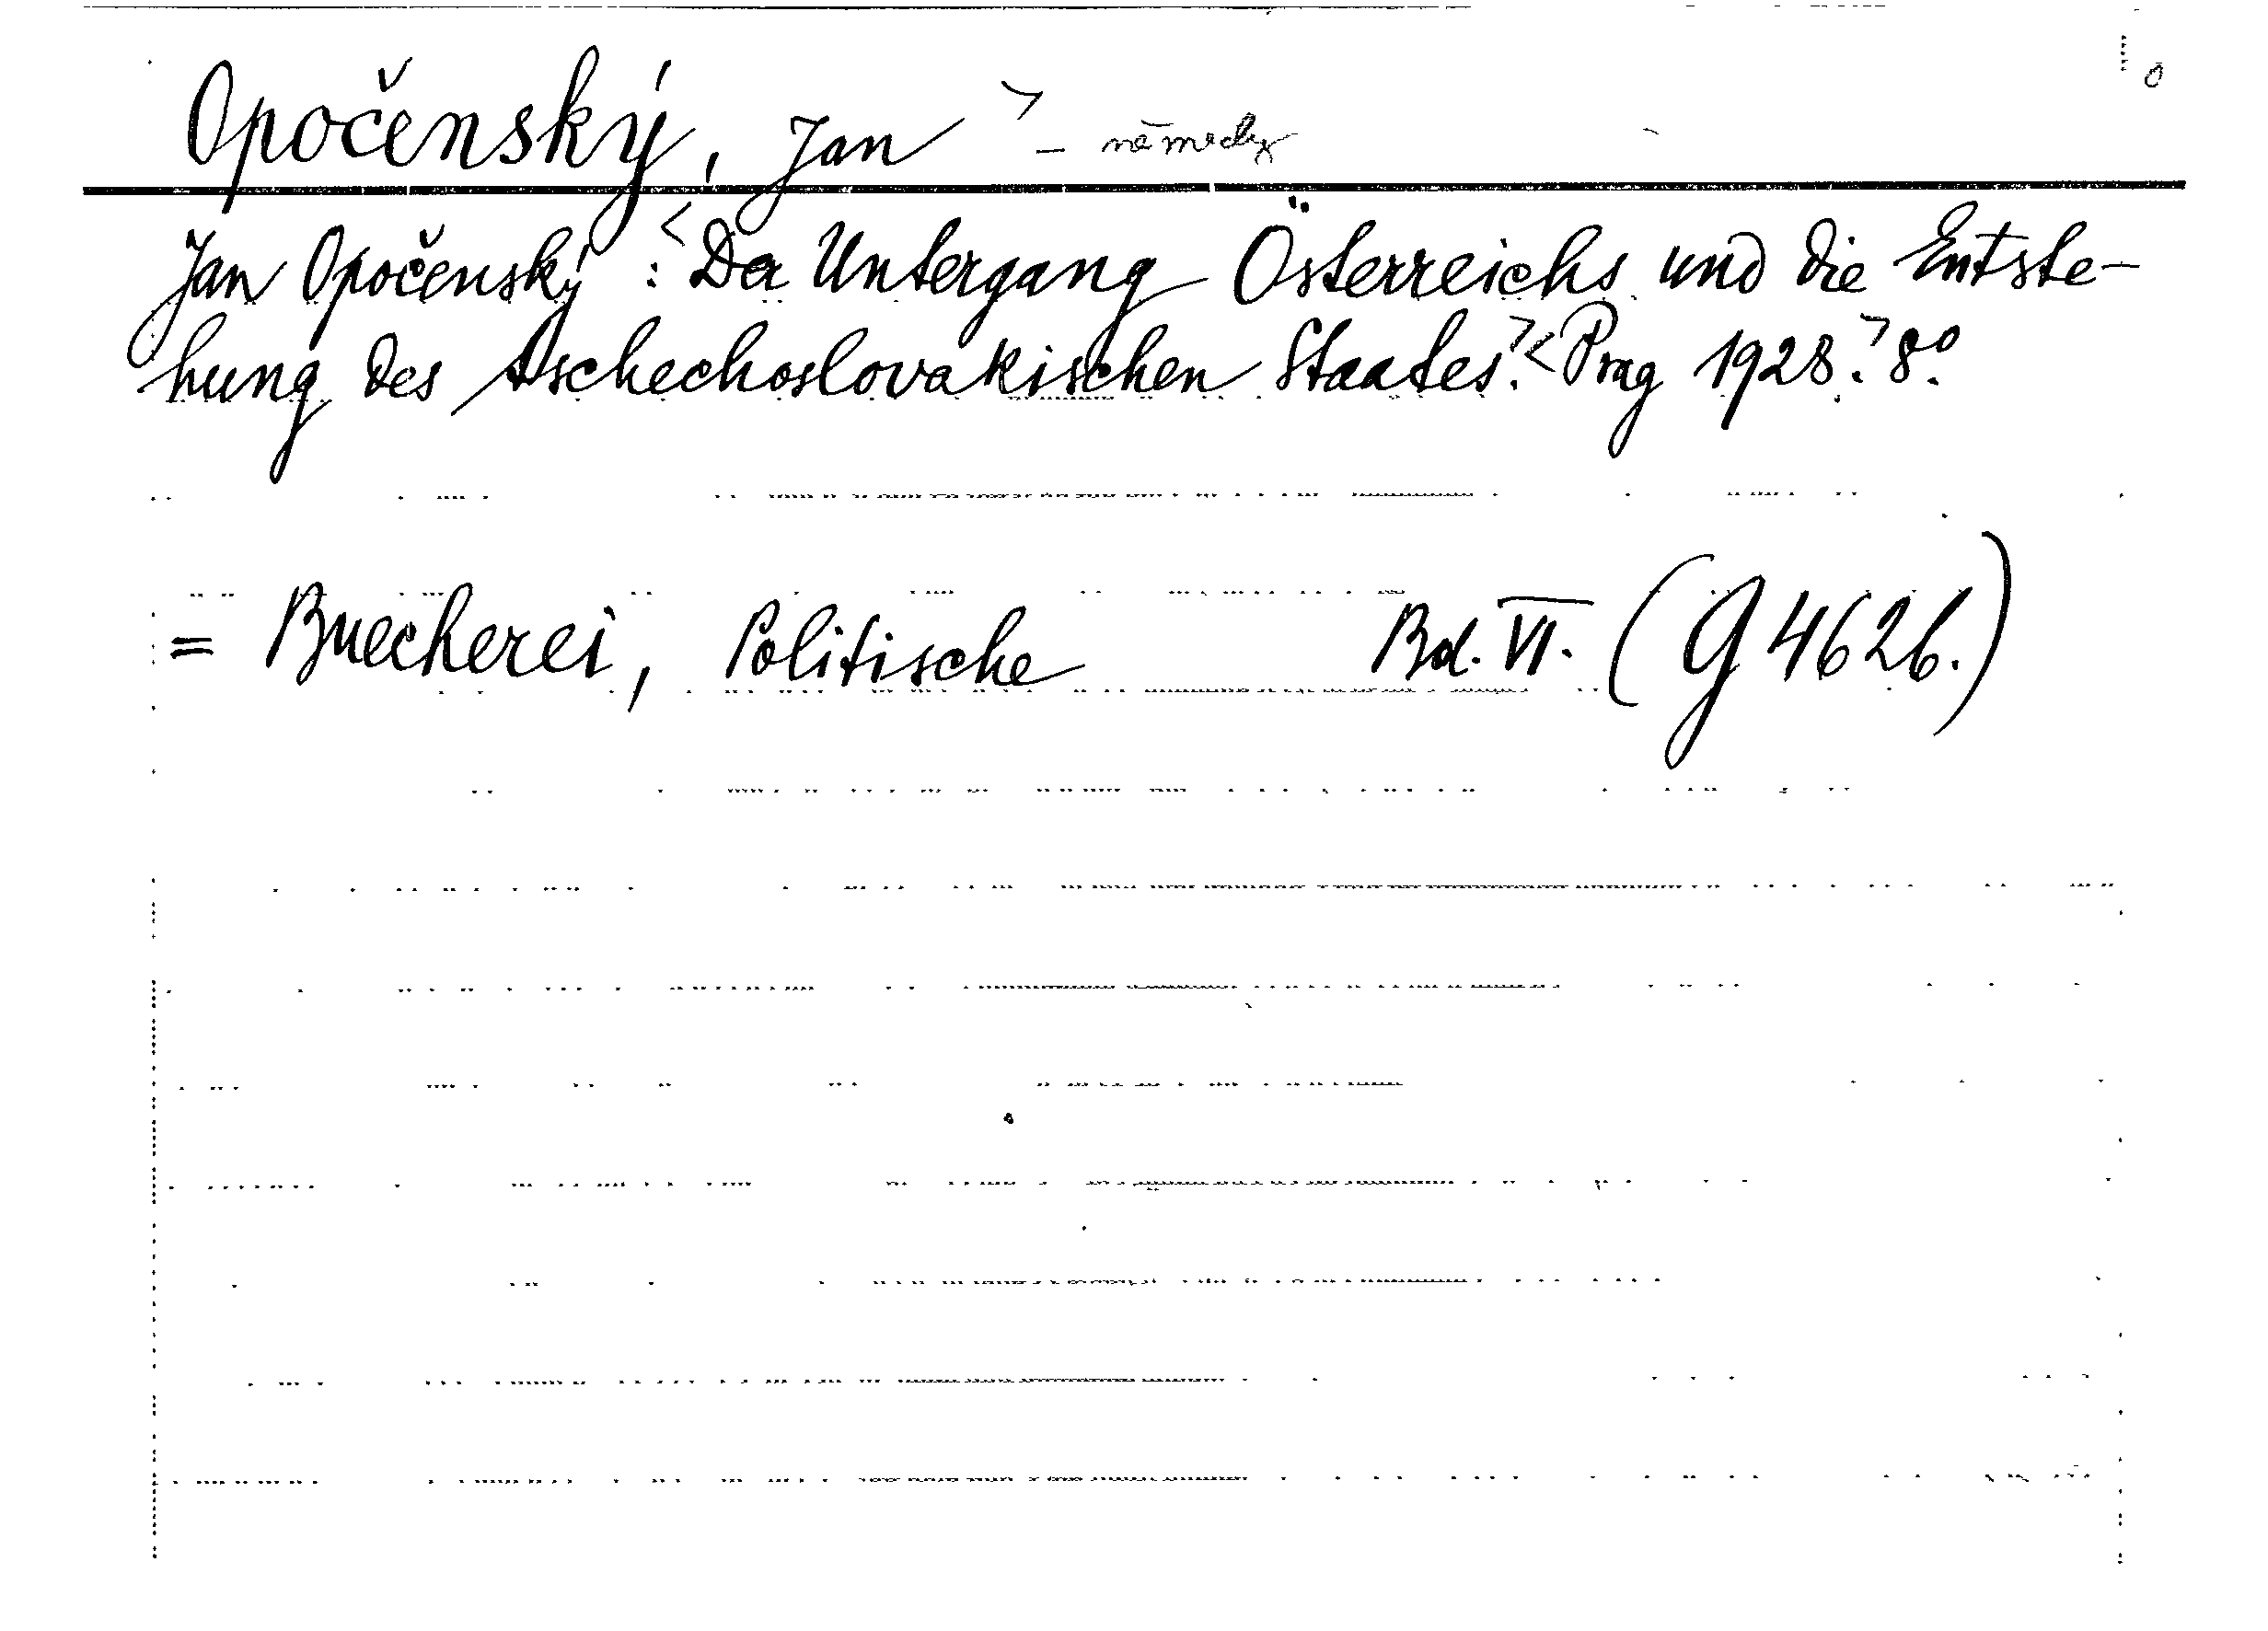 Opočenský, Jan > - německy
Jan Opočenský: <Der Untergang Österreichs und die Entste-
hung des tschechoslovakischen Staates.> <Prag 1928.> 8°.
= Buecherei, Politische Bd. VI. (G 4626.)